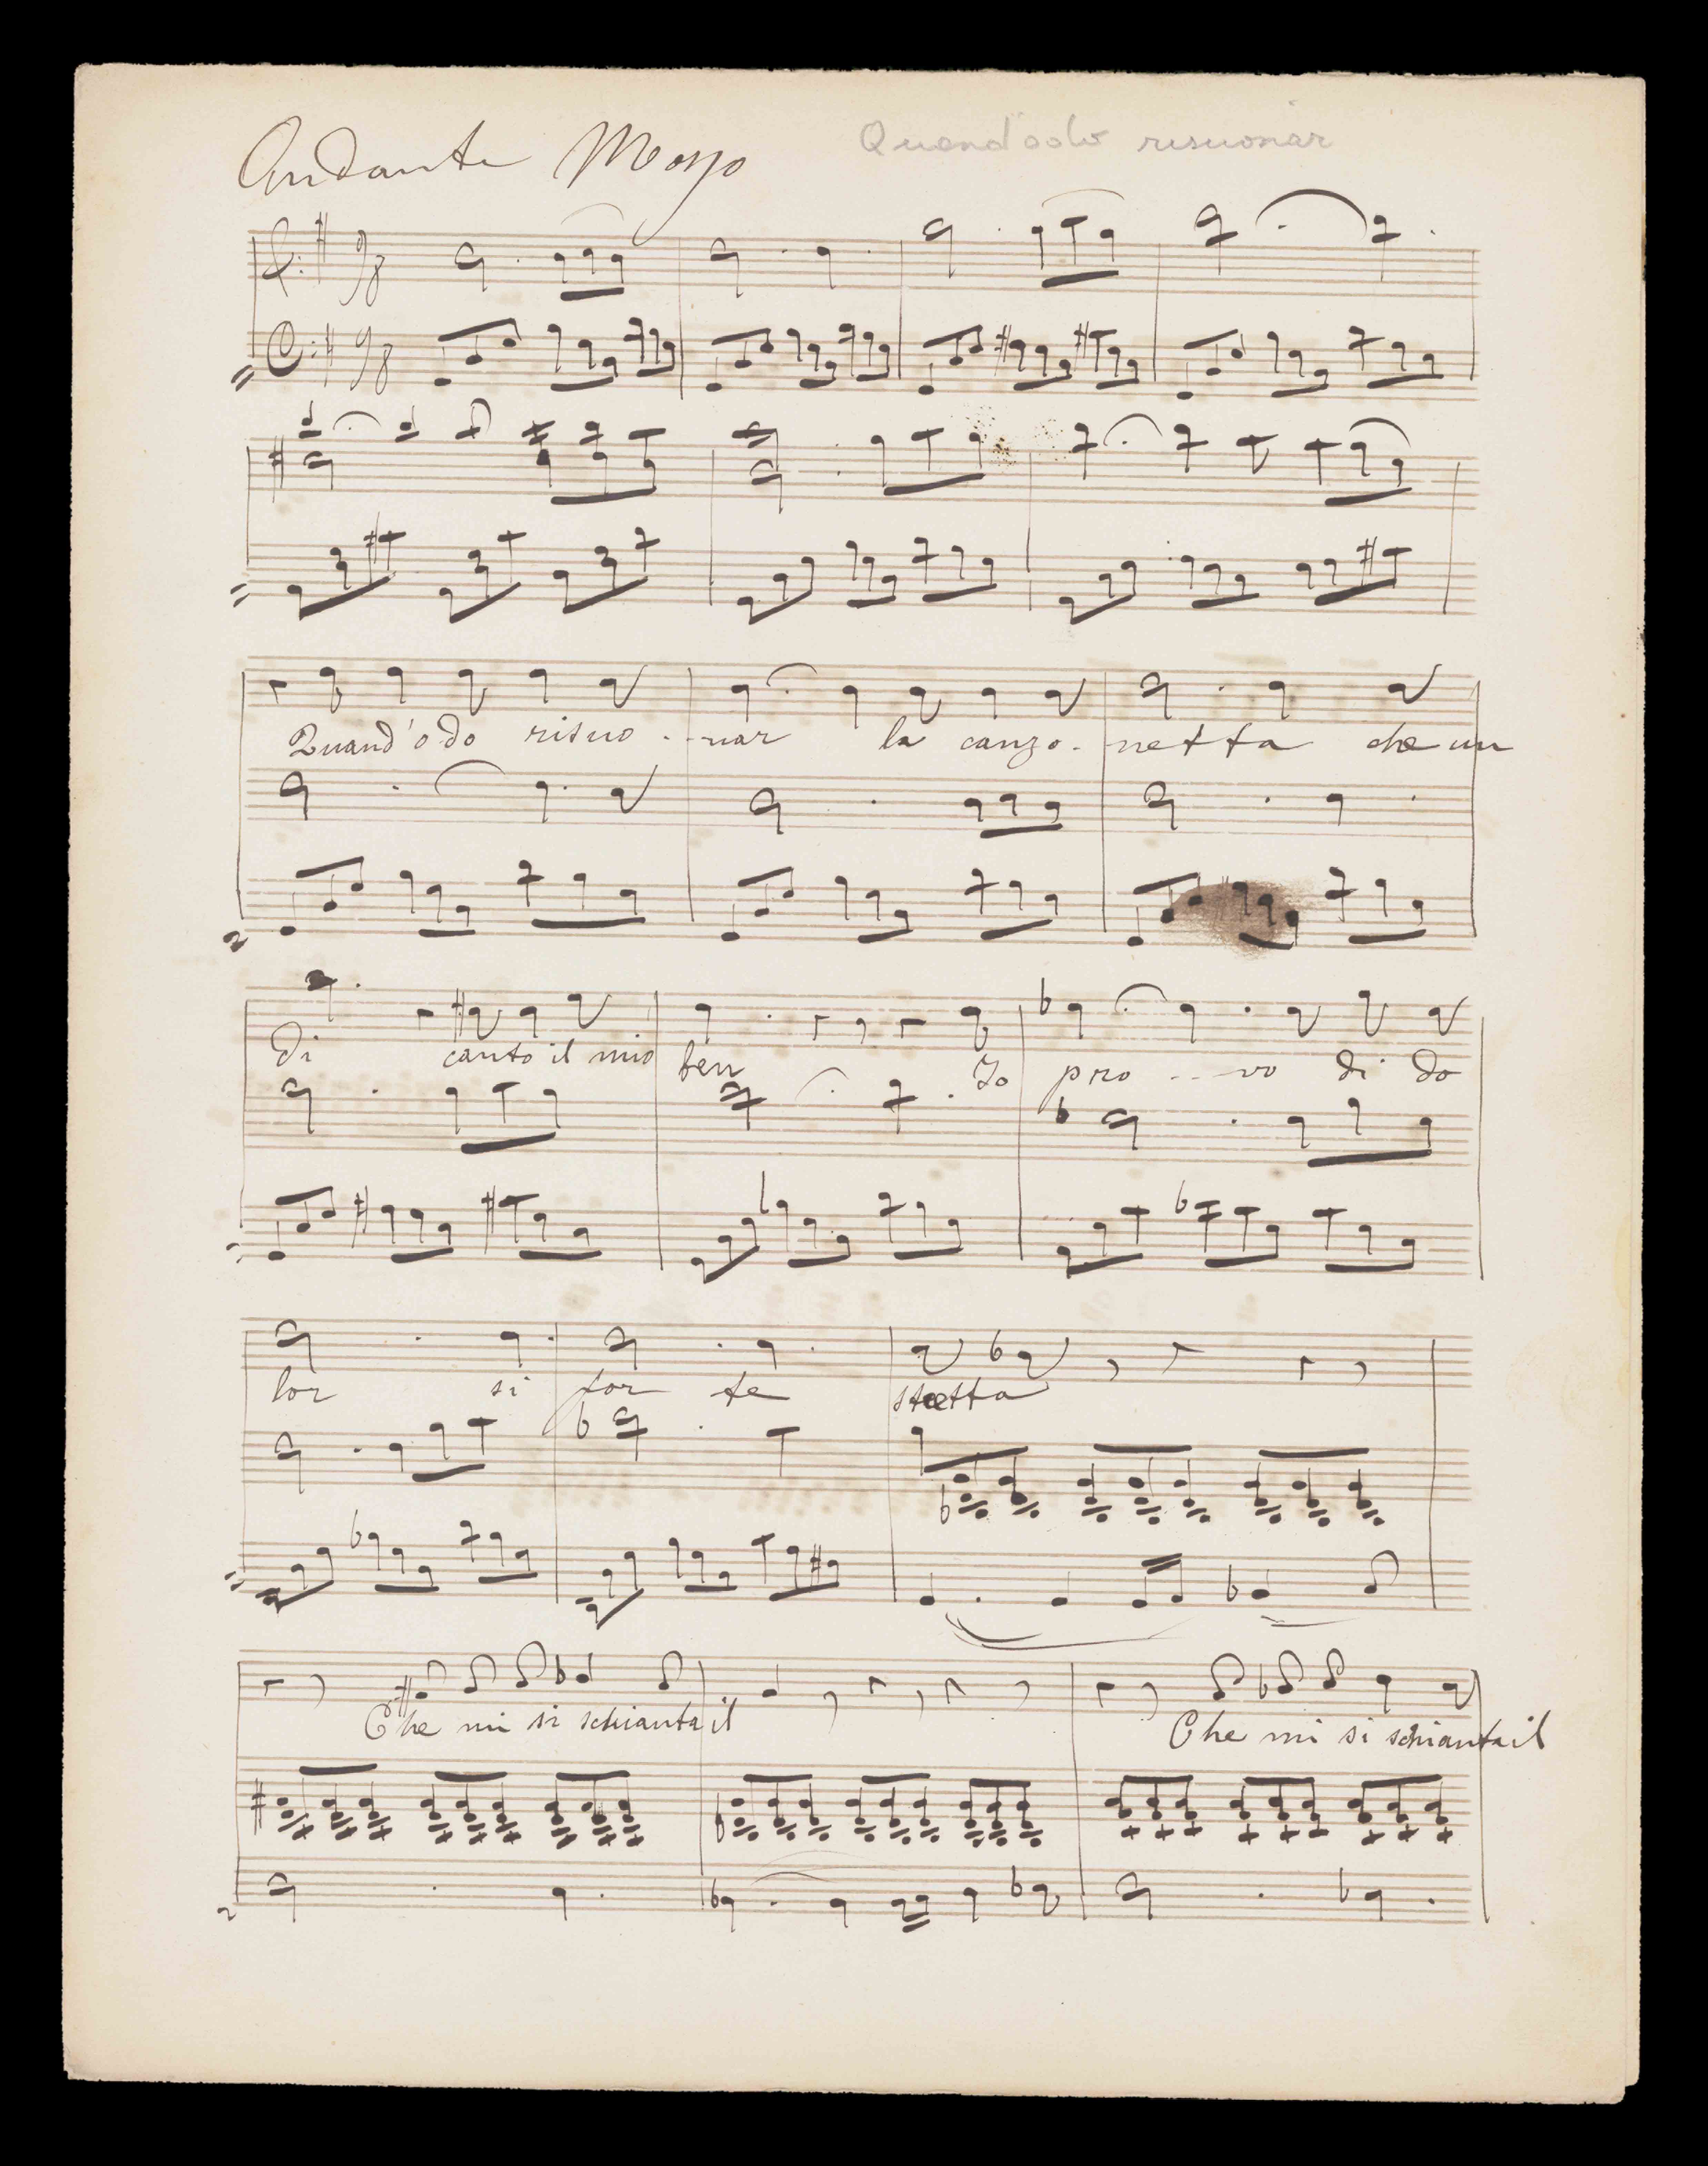 Andante Mosso
Quand'odo risuonar
9/8
9/8
Quand'odo risuo - - nar la canzo - netta che un
di canto il mio ben Io pro - - vo di do
lor si for te stretta
Che mi si schianta il Che mi si schianta il